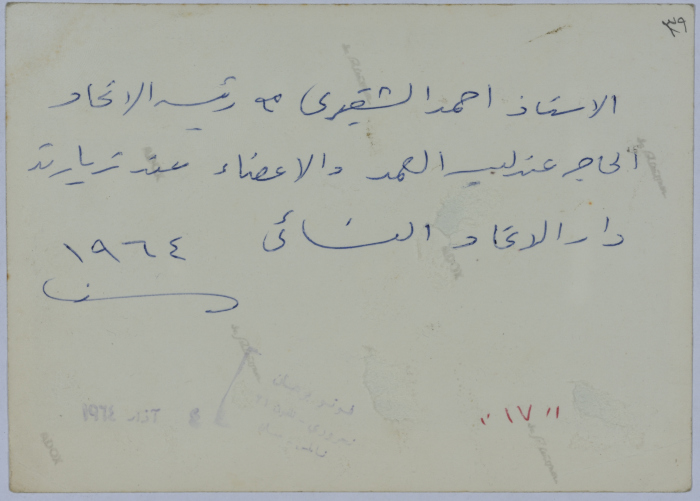 ٣٩
الاستاذ احمد الشقيري مع رئيسه الاتحاد
الحاجه عندليب العمد والاعضاء عند زيارته
دار الاتحاد النسائي ١٩٦٤
"١٧"